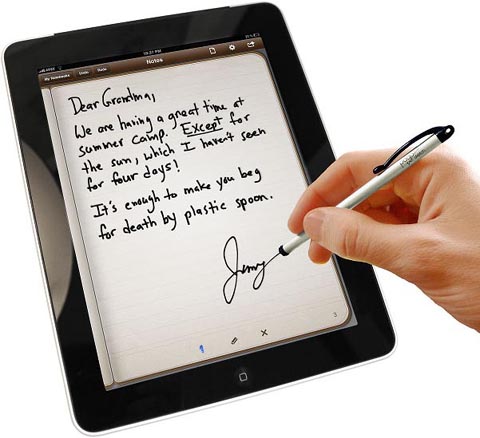 10:31 PM
My Notebooks
Undo
Redo
Notes
Dear Grandma,
We are having a great time at
summer camp. Except for
the sun, which I haven't seen
for four days!
It's enough to make you beg
for death by plastic spoon.
Jenny
3